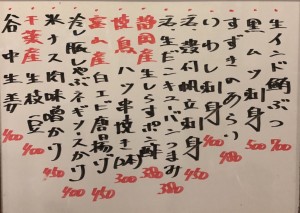 生インド鮪ぶつ 700
黒ムツ刺身 500
すずきのあらい 480
いわし刺身 400
活〆殻付帆立刺身 450
活〆生だこキュウバンつまみ 380
静岡産生しらすポン酢 380
焼鳥ハツ串焼き(2本) 300
富山産白エビ唐揚げ 450
冷し豚しゃぶネギソースがけ
米ナス肉味噌がけ 450
千葉産生枝豆 400
谷中生姜 400